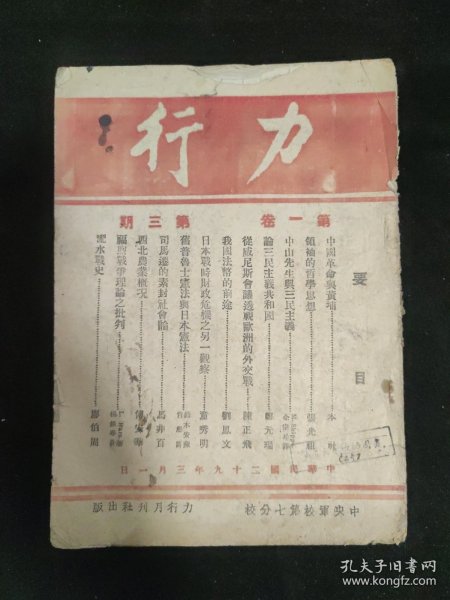 力行
第一卷 第三期
要目
中國革命與黃埔 本社
領袖的哲學思想 張光祖
中山先生與三民主義
論三民主義共和國 鄭元瑞
從威尼斯會議透視歐洲的外交戰 陳正飛
我國法幣的前途 劉鳳文
日本戰時財政危機之另一觀察 蕭秀明
舊普魯士憲法與日本憲法 鈴木安藏
司馬遷的素封社會論 馬非百
西北農業概况
閃擊戰爭理論之批判
淝水戰史 廖伯周
中華民國二十九年三月一日
中央軍校第七分校
力行月刊社出版
孔夫子旧书网
www.kongfz.com